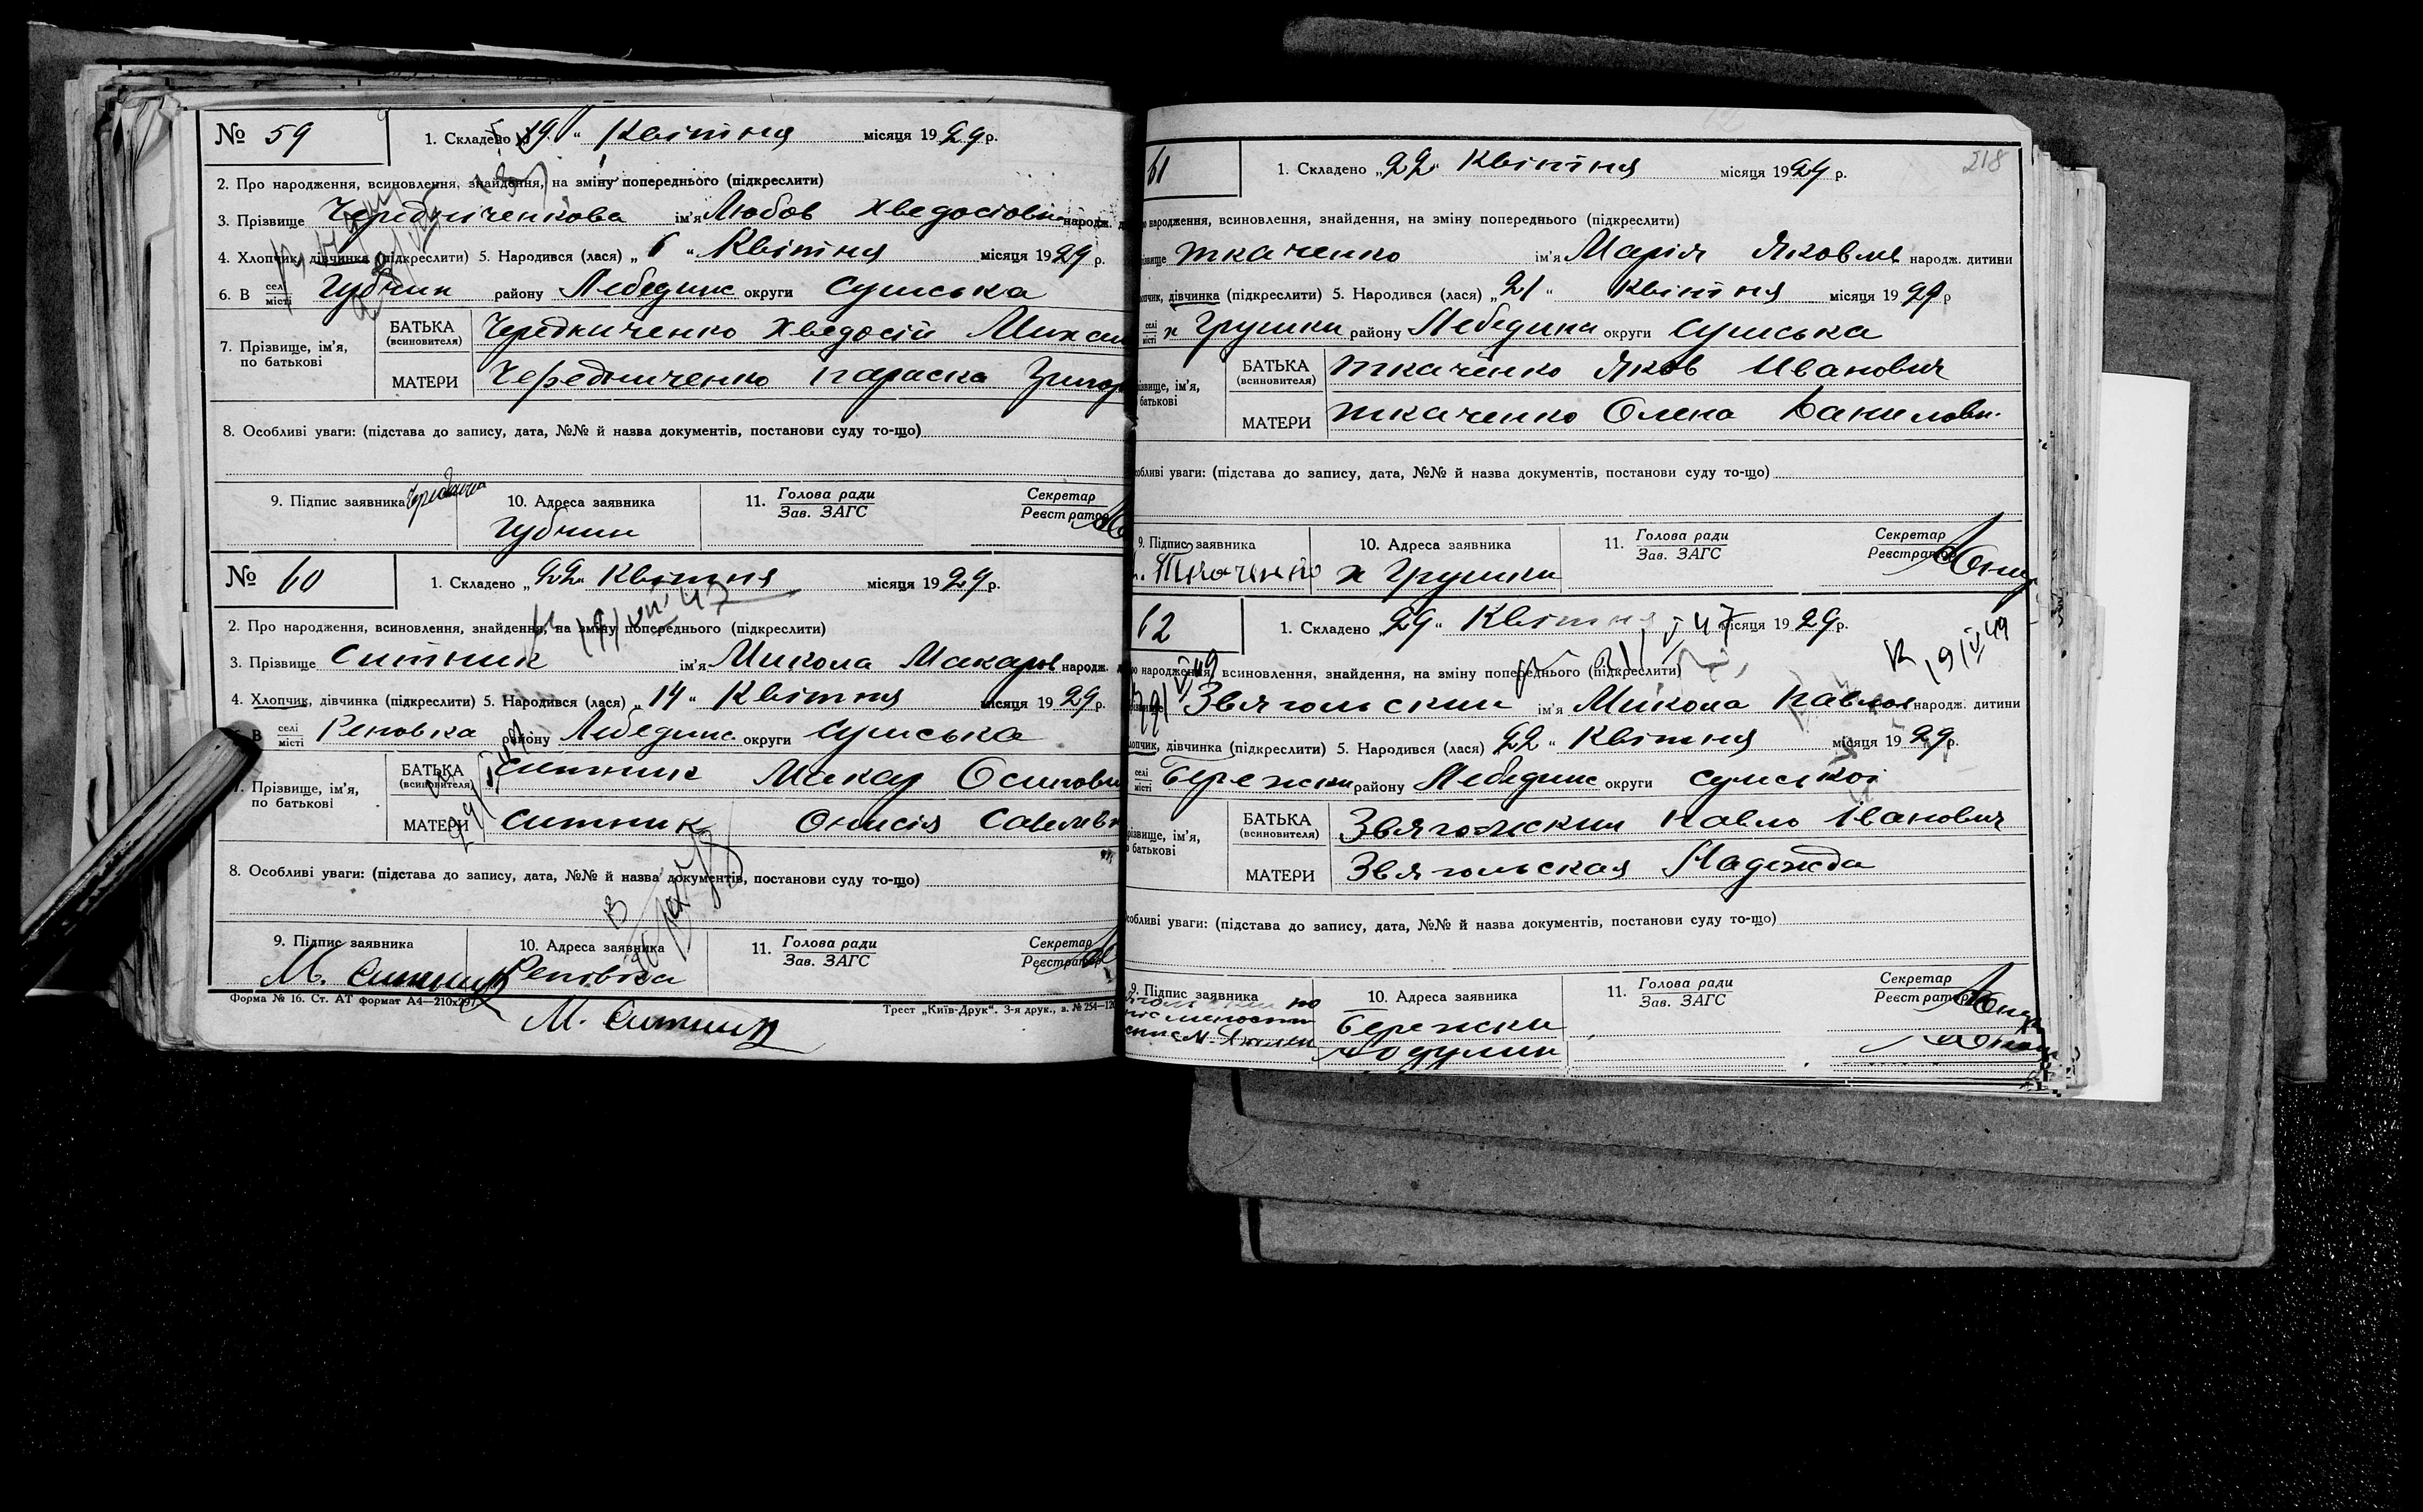 № 59
1. Складено „19“ Квітня місяця 1929 р.
2. Про народження, всиновлення, знайдення, на зміну попереднього (підкреслити)
3. Прізвище Чередніченкова ім'я Любов Хведосіовн народж.
4. Хлопчик, дівчинка (підкреслити) 5. Народився (лася) „6“ Квітня місяця 1929 р.
6. В селі місті Губчин району Лебединс округи Сумська
7. Прізвище, ім'я, по батькові
БАТЬКА (всиновителя) Чередниченко Хведосій Михай
МАТЕРИ Чередниченко Параска Григор
8. Особливі уваги: (підстава до запису, дата, №№ й назва документів, постанови суду то-що)
9. Підпис заявника
10. Адреса заявника
Губчин
11. Голова ради Зав. ЗАГС
Секретар Реєстратор
№ 60
1. Складено „22“ Квітня місяця 1929 р.
2. Про народження, всиновлення, знайдення, на зміну попереднього (підкреслити)
3. Прізвище Ситник ім'я Микола Макаров народж.
4. Хлопчик, дівчинка (підкреслити) 5. Народився (лася) „14“ Квітня місяця 1929 р.
В селі місті Реповка району Лебединс округи Сумська
Прізвище, ім'я, по батькові
БАТЬКА (всиновителя) Ситник Макар Осипови
МАТЕРИ Ситник Онисія Савелів
8. Особливі уваги: (підстава до запису, дата, №№ й назва документів, постанови суду то-що)
9. Підпис заявника
М. Ситник
10. Адреса заявника
Реповка
11. Голова ради Зав. ЗАГС
Секретар Реєстратор
Форма № 16. Ст. АТ формат А4—210х297
М. Ситник
Трест „Київ-Друк“. 3-я друк., з. № 254—120
218
61
1. Складено „22“ Квітня місяця 1929 р.
народження, всиновлення, знайдення, на зміну попереднього (підкреслити)
Ткаченко ім'я Марія Яковлів народж. дитини
дівчинка (підкреслити) 5. Народився (лася) „21“ Квітня місяця 1929 р
селі місті х Грушки району Лебедина округи Сумська
ім'я, батькові
БАТЬКА (всиновителя) Ткаченко Яков Иванович
МАТЕРИ Ткаченко Олена Данилови.
уваги: (підстава до запису, дата, №№ й назва документів, постанови суду то-що)
9. Підпис заявника
Ткаченко
10. Адреса заявника
х Грушки
11. Голова ради Зав. ЗАГС
Секретар Реєстратор
62
1. Складено „29“ Квітня місяця 1929 р.
народження, всиновлення, знайдення, на зміну попереднього (підкреслити)
19/VI 49
Звягольский ім'я Микола Павлов народж. дитини
дівчинка (підкреслити) 5. Народився (лася) „22“ Квітня місяця 1929 р.
селі місті Бережки району Лебединс округи Сумської
ім'я, батькові
БАТЬКА (всиновителя) Звягольский Павло Іванович
МАТЕРИ Звягольская Надежда
уваги: (підстава до запису, дата, №№ й назва документів, постанови суду то-що)
9. Підпис заявника
10. Адреса заявника
Бережки
11. Голова ради Зав. ЗАГС
Секретар Реєстратор